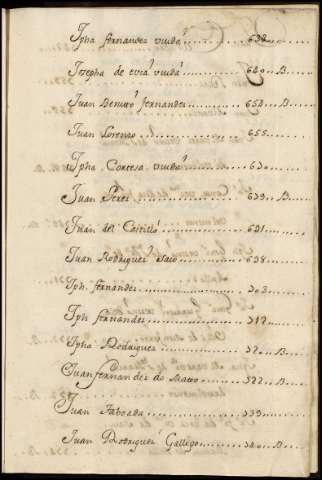 Jpha fernandez viuda ........ 638
Josepha de viuda ........ 640 .. B
Juan Benitto fernandez ........ 654 .. B
Juan Lorenzo ........ 655
Jpha Cortesa viuda ........ 670
Juan Perez ........ 679 .. B
Juan del Castillo ........ 691
Juan Rodriguez ........ 698
Jph. fernandez ........ 703
Jph fernandez ........ 712
Jpha Rodriguez ........ B
Juan fernandez do Mateo ........ 722 .. B
Juan Taboada ........ 739
Juan Rodriguez Gallego ........ 740 .. B